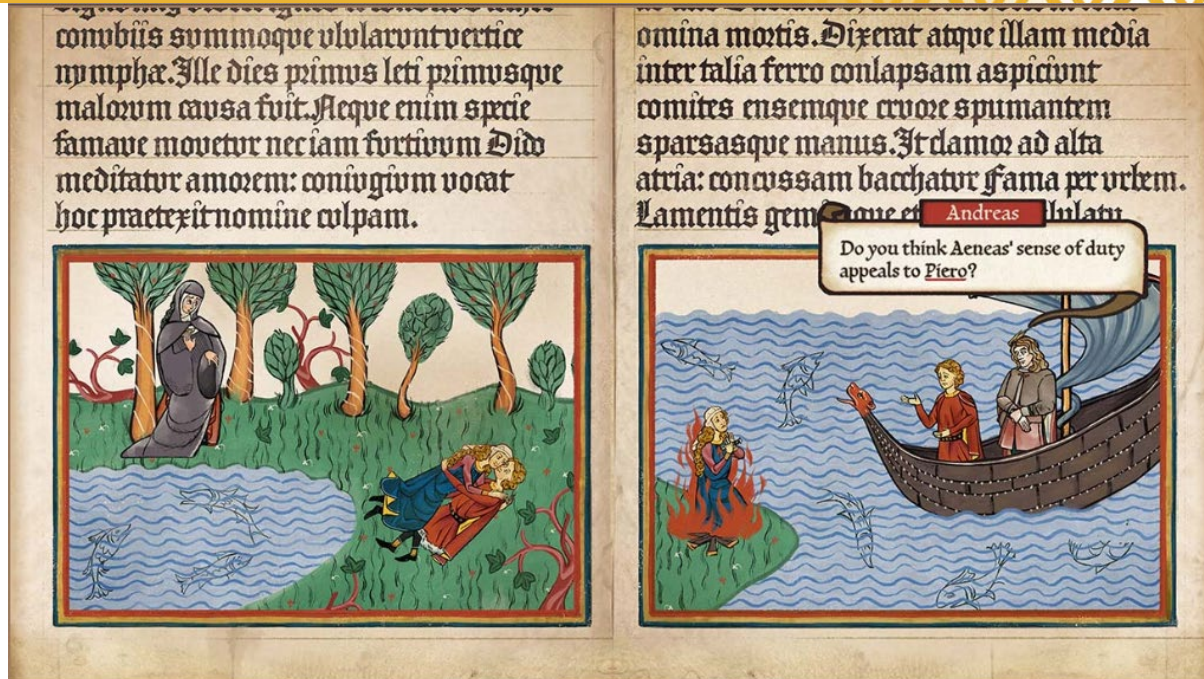 conubiis svmmoqve vlvlarvnt vertice
nymphæ. Ille dies primvs leti primvsqve
malorvm cavsa fvit. Neqve enim specie
famave movetvr nec iam fvrtivvm Dido
meditatvr amorem: conivgivm vocat
hoc praetexit nomine cvlpam.
omina mortis. Dixerat atqve illam media
inter talia ferro conlapsam aspicivnt
comites ensemqve crvore spvmantem
sparsasqve manvs. It clamor ad alta
atria: concvssam bacchatvr Fama per vrbem.
Lamentis
Andreas
Do you think Aeneas' sense of duty
appeals to Piero?